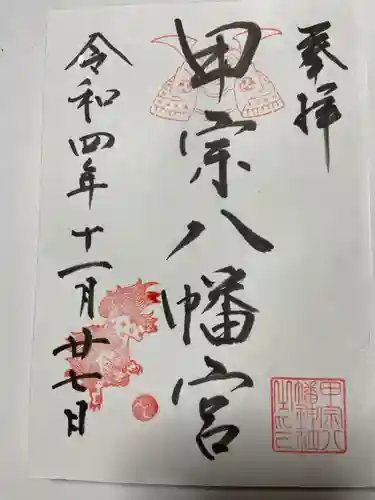 奉拝
甲宗八幡宮
令和四年十一月廿七日
甲宗八
幡神社
之印